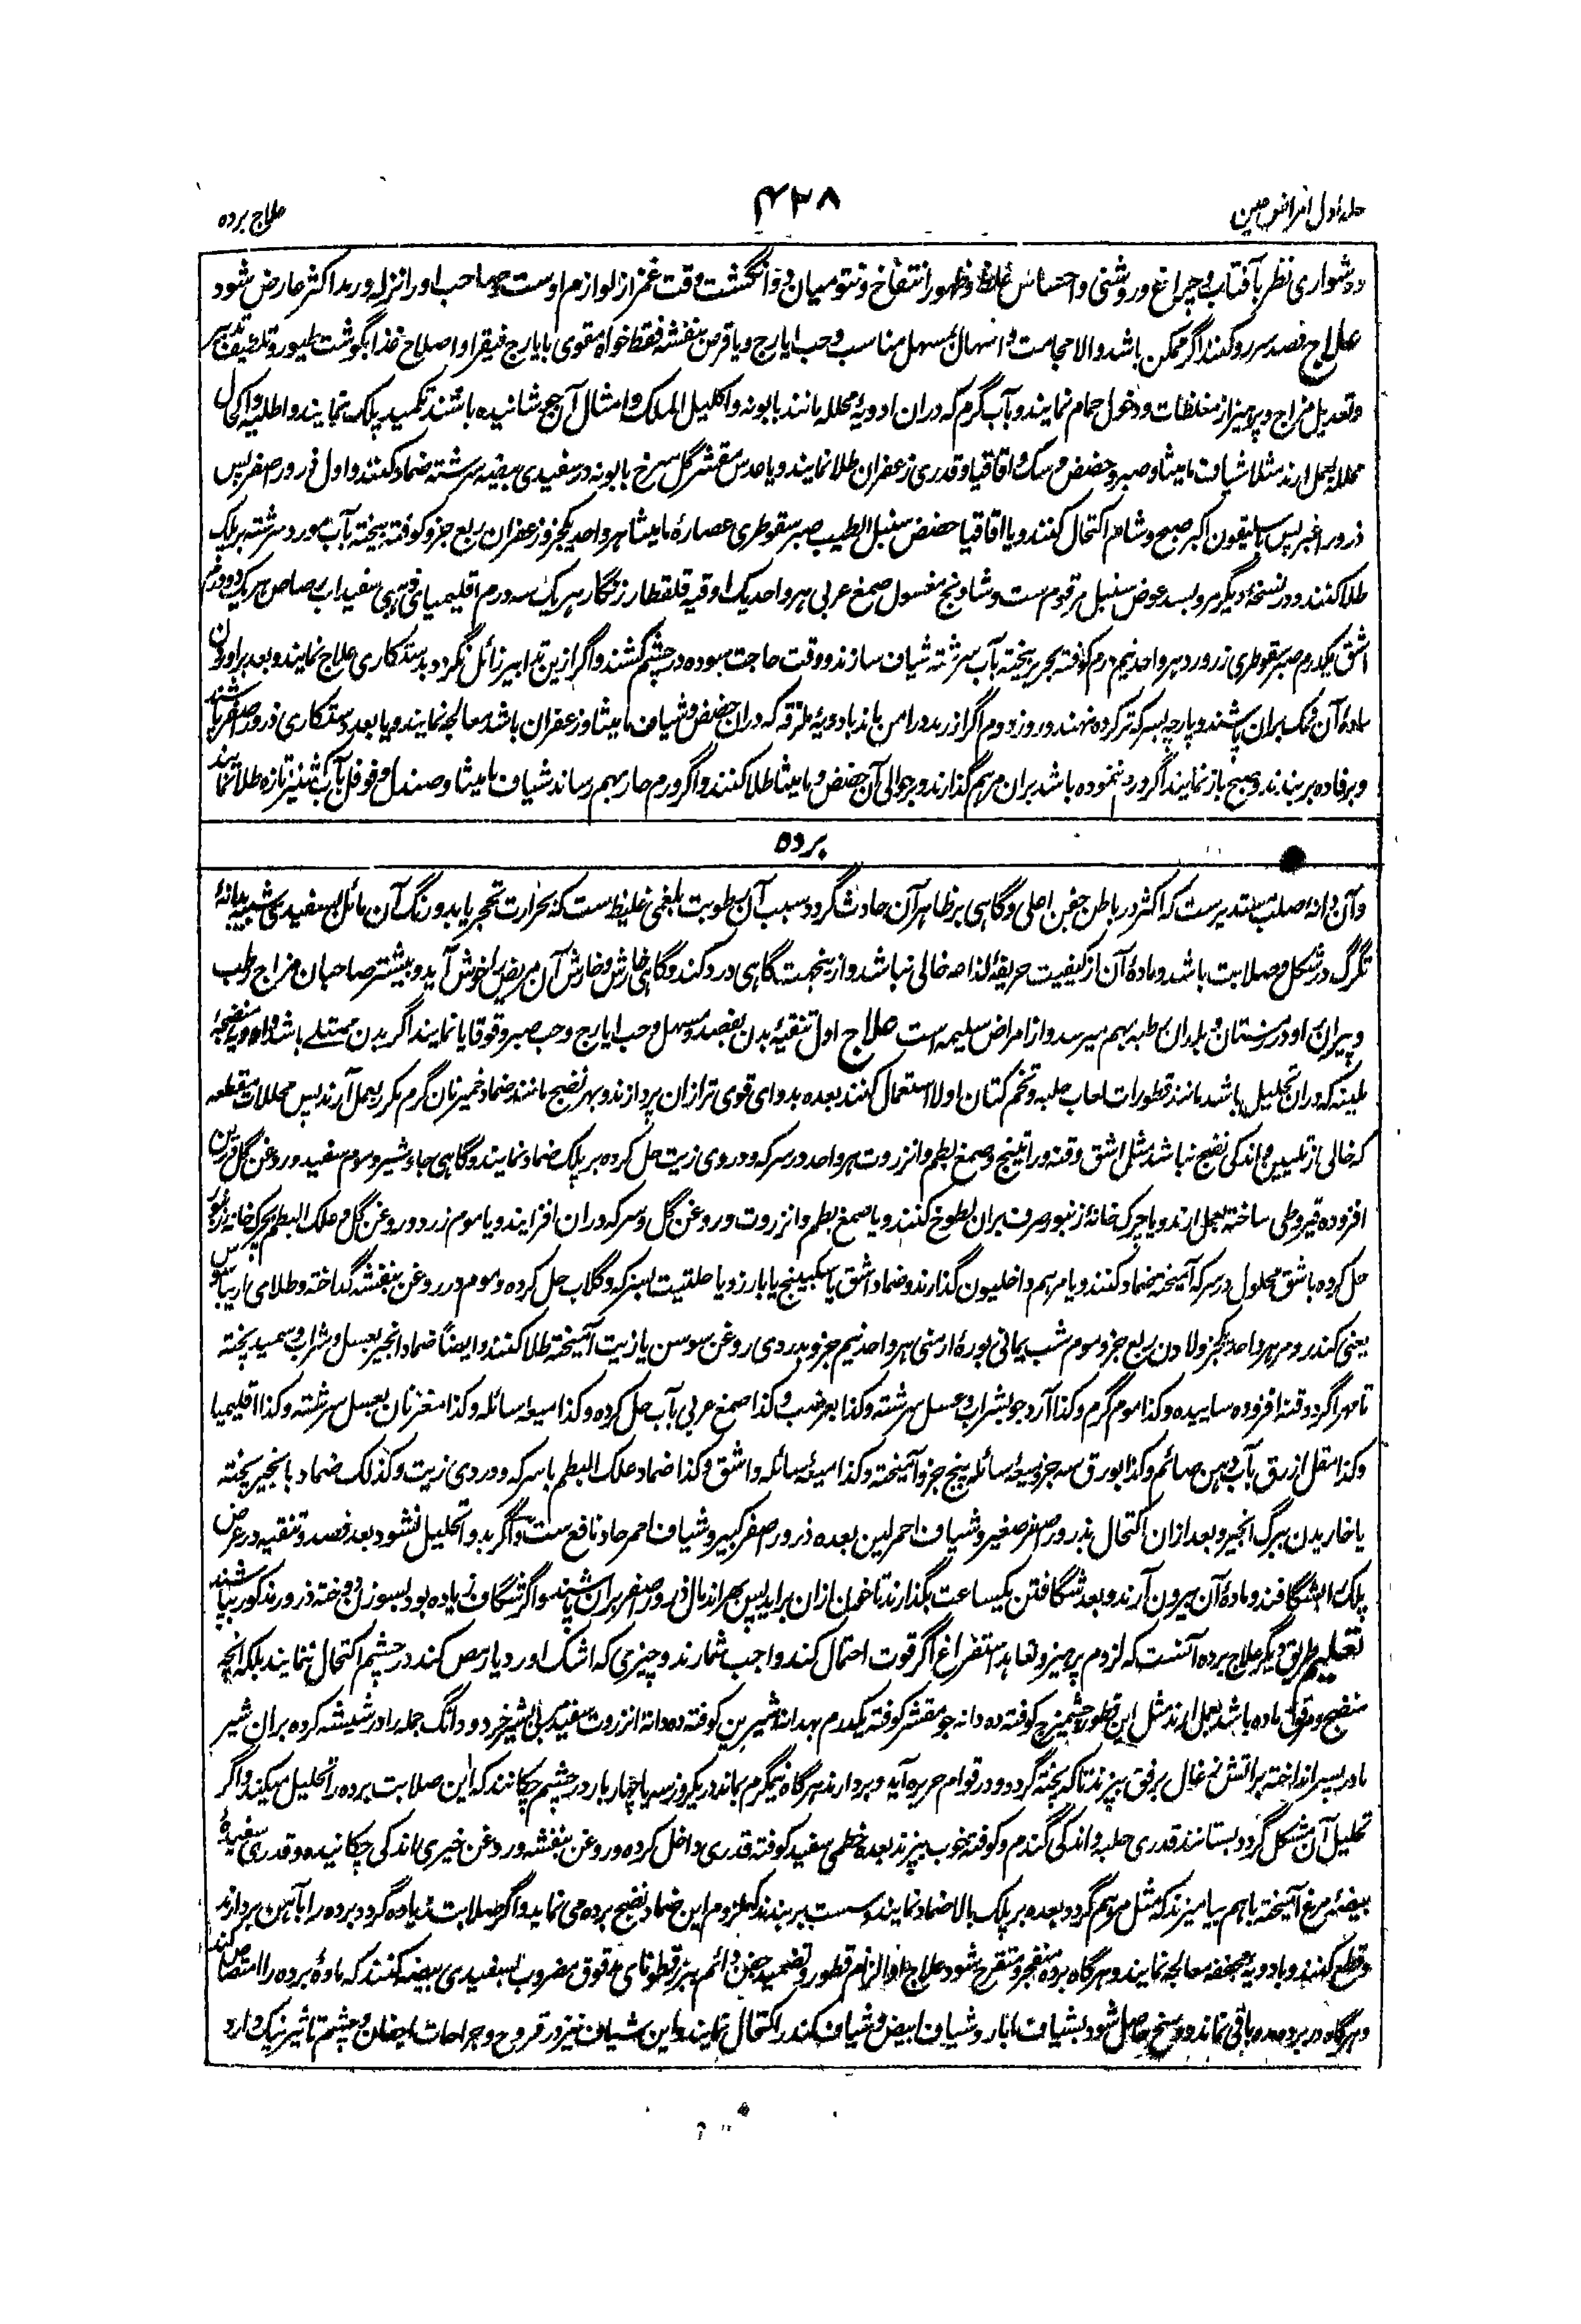 جلد اول امراض عین
۴۳۸
علاج برده
و دشواری نظر بآفتاب و چراغ و روشنی و احتساس غلظ و ظهور انتفاخ و نتو میان دو انگشت وقت غمز از لوازم اوست و صاحب او را نزله و رمد اکثر عارض شود
علاج فصد سر رو کنند اگر ممکن باشد والا حجامت و اسهال بمسهل مناسب و حب ایارج و یا قرص بنفشه فقط خواه مقوی بایارج فیقرا و اصلاح غذا بگوشت طیور و تلطیف تدبیر
و تعدیل مزاج و پرهیز از مغلظات و دخول حمام نمایند و بآب گرم که دران ادویهٔ محلله مانند بابونه و اکلیل الملک و امثال آن جوشانیده باشند تکمید پلک نمایند و اطلیه و اکحال
محلله بعمل ارند مثلا شیاف مامیثا و صبر و حضض و مسک و اقاقیا و قدری زعفران طلا نمایند و یا عدس مقشر گل سرخ بابونه در سفیدی بیضه سرشته ضماد کنند و اول ذرور اصفر پس
ذرور اغبر پس باسلیقون اکبر صبح و شام اکتحال کنند و یا اقاقیا حضض سنبل الطیب صبر سقوطری عصارهٔ مامیثا هر واحد یکجزو زعفران ربع جزو کوفته بیخته بآب مورد سرشته بر پلک
طلا کنند و در نسخهٔ دیگر مر و بسد عوض سنبل مرقوم ست و شادنج مغسول صمغ عربی هر واحد یک اوقیه قلقطار زنگار هر یک سه درم اقلیمیای ذهبی سفیداب رصاص هر یک دو درم
اشق یکدرم صبر سقوطری زرورد هر واحد نیم درم کوفته بحریر بیخته بآب سرشته شیاف سازند و وقت حاجت سوده در چشم کشند و اگر ازین تدابیر زائل نگردد بدستکاری علاج نمایند و بعد براوردن
مادهٔ آن نمک بران پاشند و پارچه بسرکه تر کرده نهند و روز دوم اگر از رمد در امن باند بادویهٔ ملزقه که دران حضض و شیاف مامیثا و زعفران باشد معالجه نمایند و یا بعد دستکاری ذرور اصفر پاشند
و برفاده بر بندند و صبح باز نمایند اگر ورم ننموده باشد بران مرهم گذارند و بر حوالی آن حضض و مامیثا طلا کنند و اگر ورم حار بهم رساند شیاف مامیثا و صندل و فوفل بآب کشنیز تازه طلا نمایند
برده
و آن دانهٔ صلب مستدیرست که اکثر در باطن جفن اعلی و گاهی بر ظاهر آن حادث گردد سبب آن رطوبت بلغمی غلیظ ست که بحرارت تحجر یابد و رنگ آن مائل بسفیدی شبیه بدانهٔ
تگرگ در شکل و صلابت باشد و مادهٔ آن از کیفیت حریفهٔ لذاعه خالی نباشد و ازینجهت گاهی درد کند و گاهی خارش و خارش آن مریض را خوش آید و بیشتر صاحبان مزاج رطب
و پیران را و در زمستان و بلدان رطبه بهم میرسد و از امراض سلیمه است علاج اول تنقیهٔ بدن بفصد و مسهل و حب ایارج و حب صبر و قوقایا نمایند اگر بدن ممتلی باشد و ادویهٔ منضجهٔ
ملینه که دران تحلیل باشد مانند قطورات لعاب حلبه و تخم کتان اولا استعمال کنند بعده بدوای قوی تر ازان پردازند و بهر نضیج مانند ضماد خمیر نان گرم مکرر بعمل آرند پس محللات مقطعه
که خالی از تلیین و اندکی نضج نباشد مثل اشق و قنه و راتینج و صمغ بطم و انزروت هر واحد در سرکه و دردی زیت حل کرده بر پلک ضماد نمایند و گاهی جاوشیر و موم سفید و روغن گل درین
افزوده قیروطی ساخته بعمل ارند و یا چرک خانهٔ زنبور صرف بران لطوخ کنند و یا صمغ بطم و انزروت و روغن گل و سرکه دران افزایند و یا موم زرد و روغن گل و علک البطم چرک خانه زنبور
حل کرده باشق محلول در سرکه آمیخته ضماد کنند و یا مرهم داخلیون گذارند و ضماد اشق یا سکبینج یا بارزد یا حلتیت بسرکه و گلاب حل کرده و موم در روغن بنفشه گداخته و طلای
یعنی کندر و مر هر واحد یکجزو لادن ربع جزو موم شب یمانی بورهٔ ارمنی هر واحد نیم جزو بدردی روغن سوسن یا زیت آمیخته طلا کنند و ایضاً ضماد انجیر بعسل و شراب و سمید پخته
تا مهرا گردد و قنه افزوده ساییده و کذا موم گرم و کذا آرد جو بشراب و عسل سرشته و کذا و کذا صمغ عربی بآب حل کرده و کذا میعه سائله و کذا مغز نان بعسل سرشته و کذا اقلیمیا
و کذا مقل ازرق بآب دهن صائم و کذا بورق سه جزو میعهٔ سائله پنج جزو آمیخته و کذا میعهٔ سائله و اشق و کذا ضماد علک البطم با سرکه و دردی زیت و کذلک ضماد بانجیر پخته
یا خاریدن ببرگ انجیر و بعد ازان اکتحال بذرور اصفر صغیر و شیاف احمر لین بعده ذرور اصفر کبیر و شیاف احمر حاد نافع ست و اگر بدوا تحلیل نشود بعد فصد و تنقیه در عرض
پلک را بشگافند و مادهٔ آن بیرون آرند و بعد شگافتن یکساعت بگذارند تا خون ازان براید پس بهر اندمال ذرور اصفر بران پاشند و اگر شگاف زیاده بود بسوزن دوخته ذرور مذکور بپاشند
تعلیم طریق دیگر علاج برده آنست که لزوم پرهیز و تعاهد استفراغ اگر قوت احتمال کند واجب شمارند و چیزی که اشک اورد یا رمص کند در چشم اکتحال ننمایند بلکه انچه
منضج و مرقق ماده باشد بعمل ارند مثل این قطور چشمیزج کوفته ده دانه جو مقشر کوفته یکدرم بهدانه شیرین کوفته ده دانه انزروت سفید مربی بشیر خر دو دانگ جمله را در شیشه کرده بران شیر
مادر پسر انداخته بر آتش زغال برفق بپزند تا که پخته گردد و در قوام حریره آید و بردارند هر گاه نیمگرم بماند در یکروز سه یا چهار بار در چشم چکانند که این صلابت برده را تحلیل میکند و اگر
تحلیل آن مشکل گردد بستانند قدری حلبه و اندکی گندم و کوفته خوب بپزند بعده خطمی سفید کوفته قدری داخل کرده و روغن بنفشه و روغن خیری اندکی چکانیده و قدری سفیدهٔ
بیضهٔ مرغ آمیخته باهم بیامیزند که مثل مرهم گردد بعده بر پلک بالا ضماد نمایند و سست بر بندند که لزوم این ضماد نضج برده می نماید و اگر صلابت زیاده گردد برده را بآهن بردارند
و قطع کنند و بادویه مجففه معالجه نمایند و هر گاه برده منفجر و متقرح شود علاج او الزام قطور و تضمید جفن دائم ببزر قطونای مدقوق مضروب بسفیدی بیضه کنند که مادهٔ برده را امتصاص کند
و هرگاه در برده مده باقی نماند و وسخ حاصل شود بشیاف ابار و شیاف ابیض و شیاف کندر اکتحال نمایند و این شیاف نیز در قروح و جراحات اجفان و چشم تاثیر نیک دارد